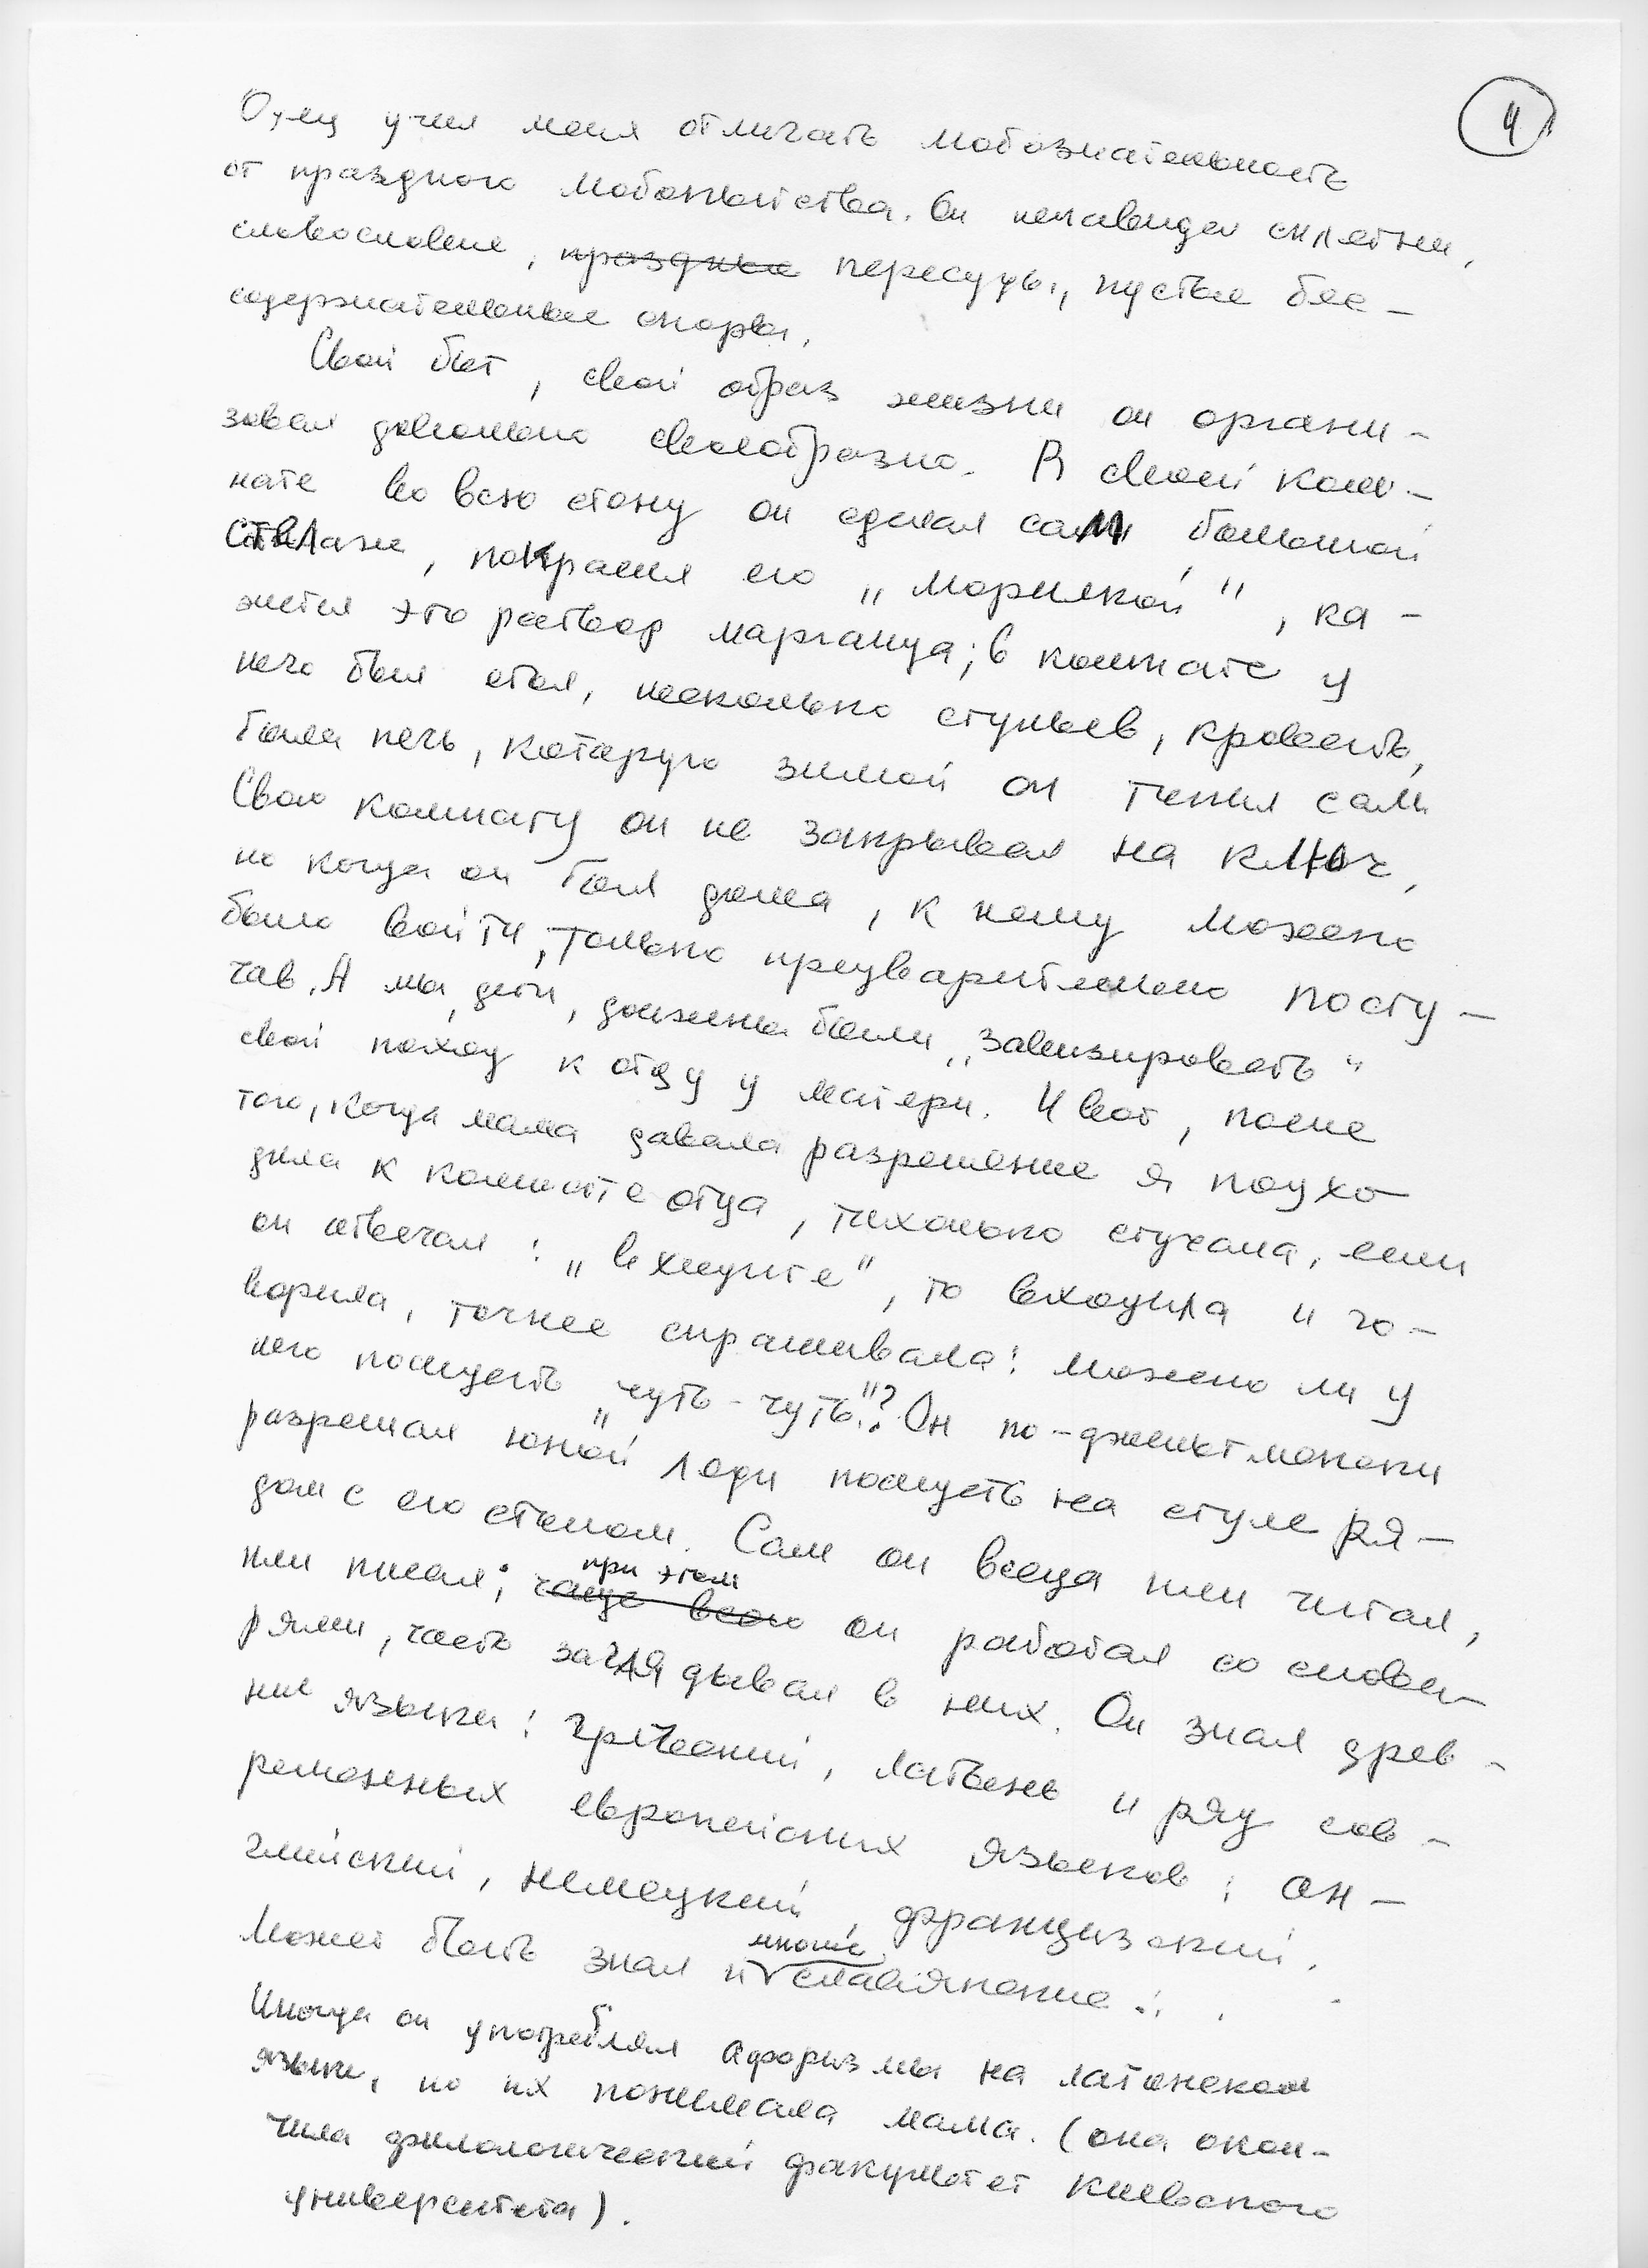 4
Отец учил меня отличать любознательность
от праздного любопытства. Он ненавидел сплетни,
словословие, праздные пересуды, пустые бес-
содержательные споры.
Свой быт, свой образ жизни он органи-
зовал довольно своеобразно. В своей ком-
нате во всю стену он сделал сам большой
стеллаж, покрасил его „морилкой", ка-
жется это раствор марганца; в комнате у
него был стол, несколько стульев, кровать,
была печь, которую зимой он топил сам.
Свою комнату он не закрывал на ключ,
но когда он был дома, к нему можно
было войти, только предварительно посту-
чав. А мы, дети, должны были „завизировать"
свой поход к отцу у матери. И вот, после
того, когда мама давала разрешение я подхо-
дила к комнате отца, тихонько стучала, если
он отвечал: „войдите", то входила и го-
ворила, точнее спрашивала: можно ли у
него посидеть „чуть-чуть"? Он по-джентльменски
разрешал юной леди посидеть на стуле ря-
дом с его столом. Сам он всегда или читал,
или писал; чаще всего при этом он работал со слова-
рями, часто заглядывал в них. Он знал древ-
ние языки: греческий, латынь и ряд сов-
ременных европейских языков: ан-
глийский, немецкий, французский.
Может быть знал и многие славянские...
Иногда он употреблял афоризмы на латинском
языке, но их понимала мама. (она окон-
чила филологический факультет Киевского
университета).